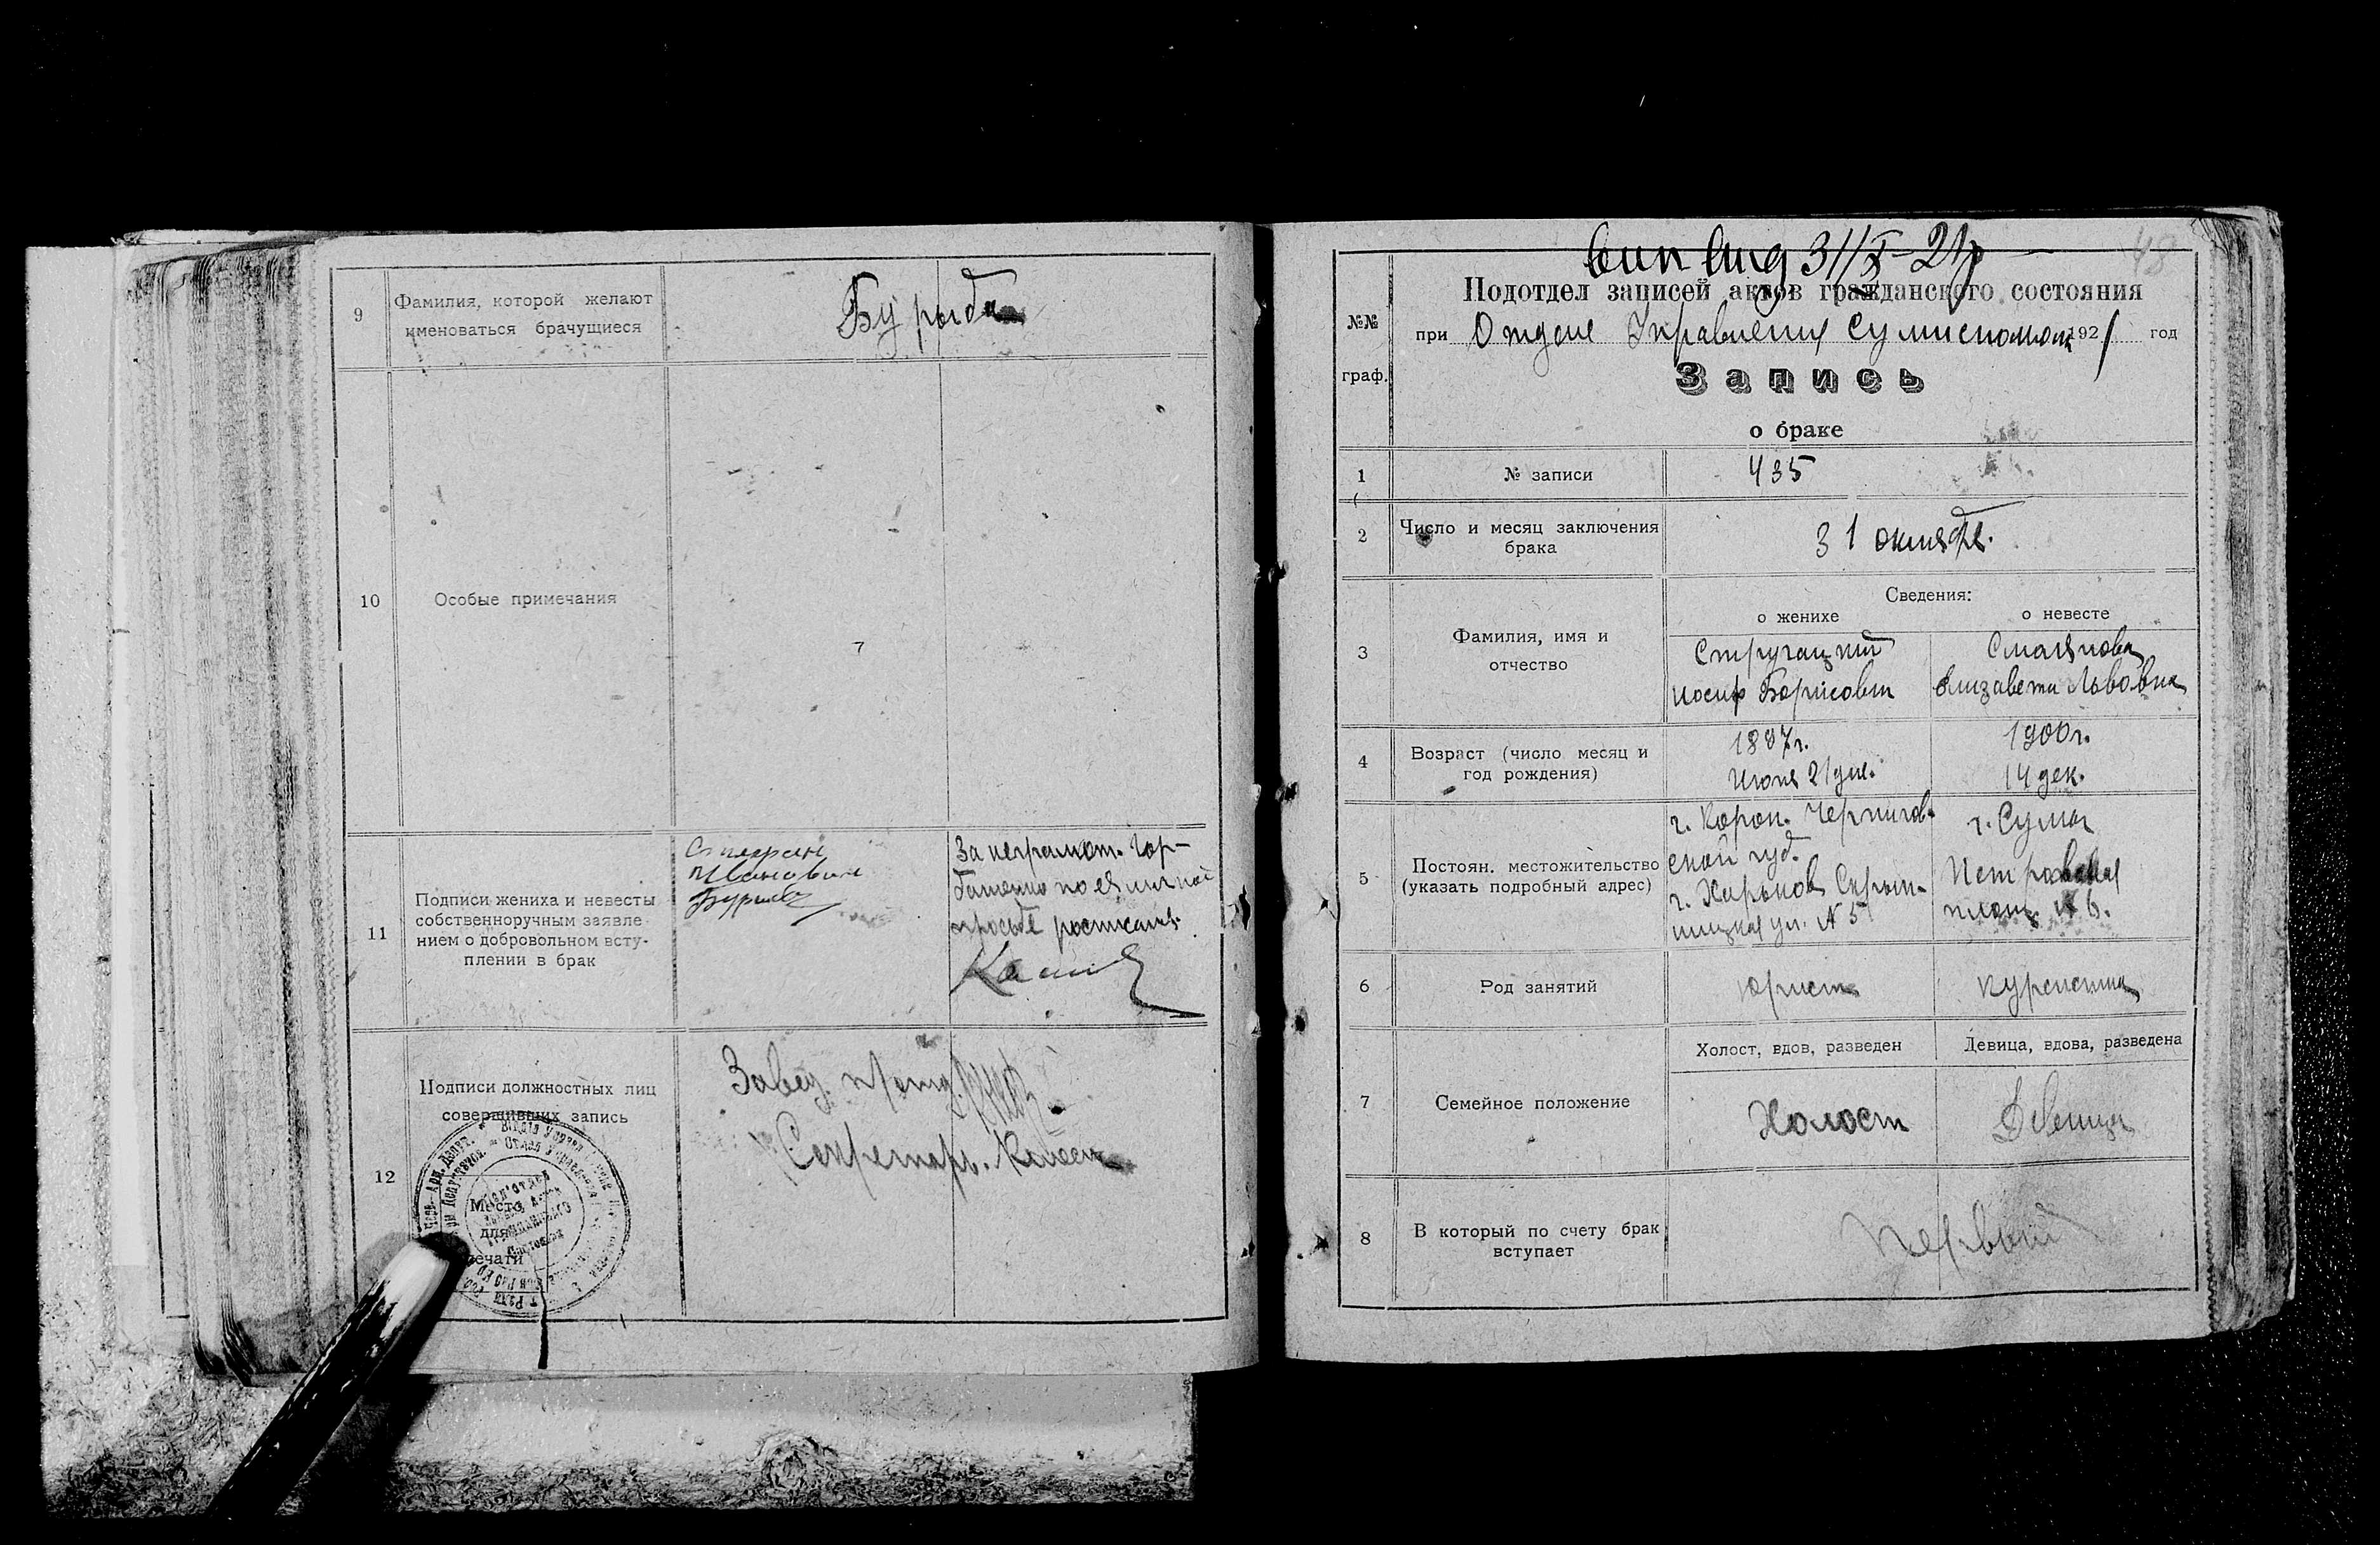 9
Фамилия, которой желают
именоваться брачущиеся
Бурыба
10
Особые примечания
11
Подписи жениха и невесты
собственноручным заявле-
нием о добровольном всту-
плении в брак
Степан
Иванович
За неграмот. Гор-
батенко по ея личной
просьбе росписался
12
Подписи должностных лиц
совершивших запись
Место
для
печати
Завед. п/отд.
Секретарь.
48
Подотдел записей актов гражданского состояния
№№
граф.
при Отделе Управления Сумисполкома 1921 год
Запись
о браке
1
№ записи
435
2
Число и месяц заключения
брака
31 октября.
3
Фамилия, имя и
отчество
Сведения:
о женихе
о невесте
Стругацкий
Иосиф Борисович
Смолянова
Елизавета Львовна
4
Возраст (число месяц и
год рождения)
1897г.
Июня 21 дня.
1900г.
14 дек.
5
Постоян. местожительство
(указать подробный адрес)
г. Короп. Чернигов-
ской губ.
г. Харьков Скрып-
ницкая ул. N 5
г. Сумы
Петровская
площ. N 6.
6
Род занятий
юрист
курсистка
7
Семейное положение
Холост, вдов, разведен
Девица, вдова, разведена
Холост
Девица
8
В который по счету брак
вступает
первый